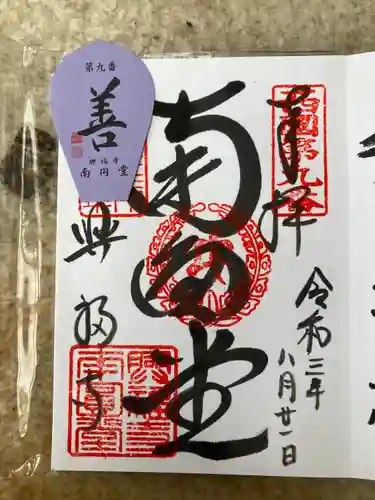 奉拝
西國第九番
令和三年
八月廿一日
南円堂
興福寺
第九番
善
興福寺
南円堂